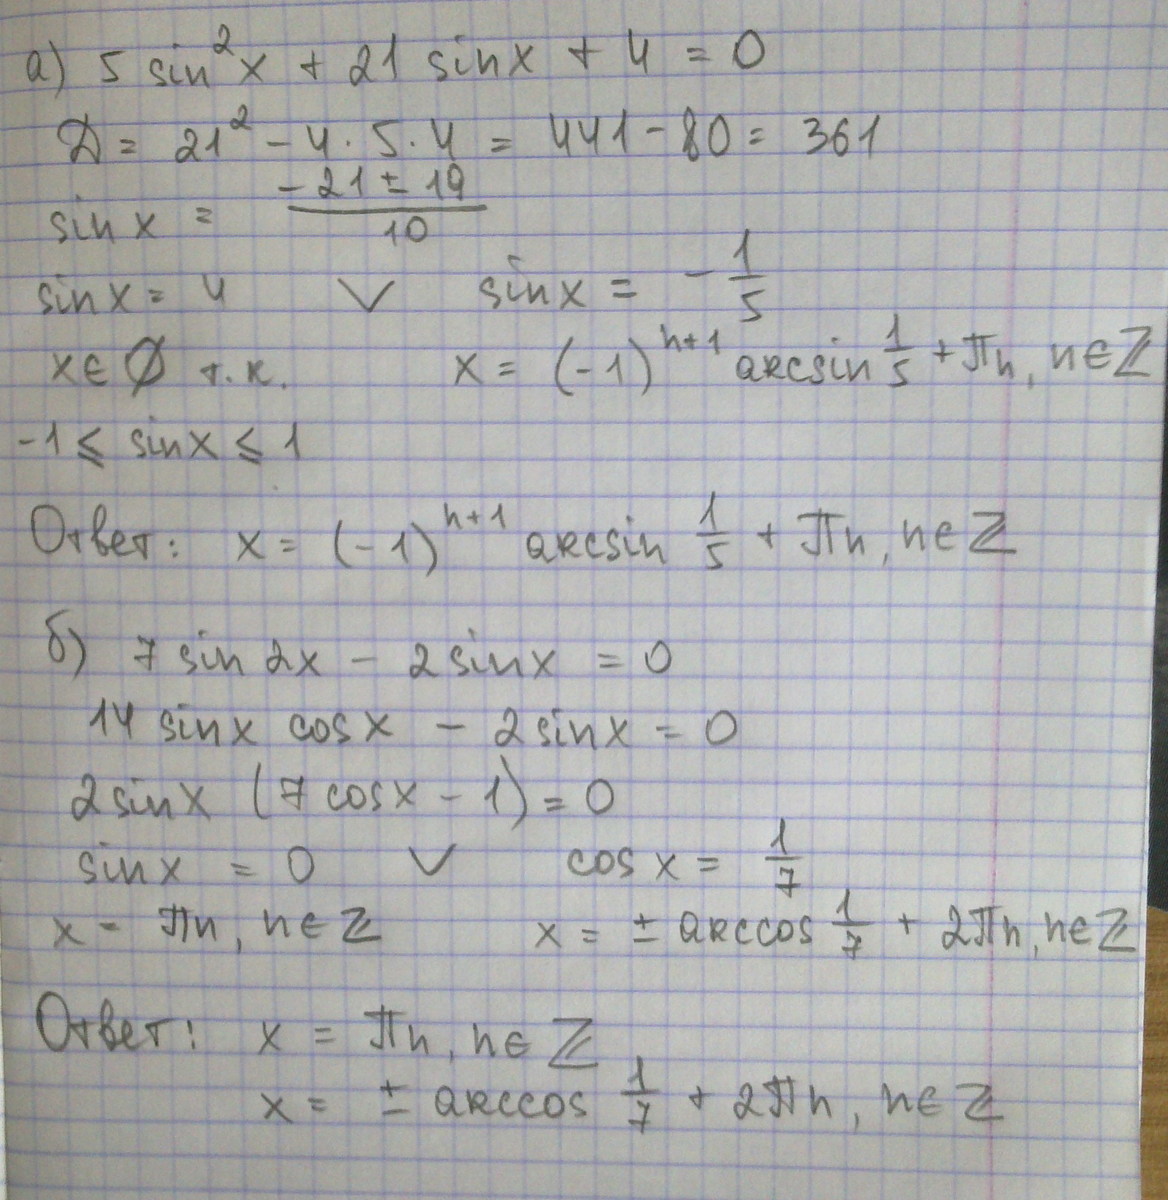 а) 5 sin²x + 21 sinx + 4 = 0
Д = 21² - 4 · 5 · 4 = 441 - 80 = 361
sin x = (-21 ± 19)/10
sin x = 4 ∨ sin x = -1/5
x ∈ ∅ т.к. x = (-1)ⁿ⁺¹ arcsin 1/5 + πn, n ∈ ℤ
-1 ≤ sin x ≤ 1
Ответ: x = (-1)ⁿ⁺¹ arcsin 1/5 + πn, n ∈ ℤ
б) 7 sin 2x - 2 sin x = 0
14 sin x cos x - 2 sin x = 0
2 sin x (7 cos x - 1) = 0
sin x = 0 ∨ cos x = 1/7
x - πn, n ∈ ℤ x = ± arccos 1/7 + 2πn, n ∈ ℤ
Ответ: x = πn, n ∈ ℤ
x = ± arccos 1/7 + 2πn, n ∈ ℤ